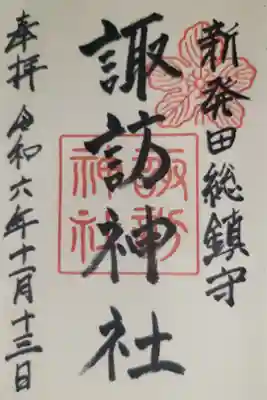 新発田総鎮守
諏訪神社
奉拝 令和六年十一月十三日
諏訪神社